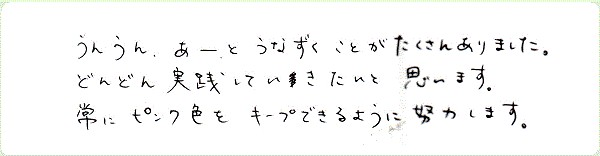 うんうん、あー、と うなずくことがたくさんありました。
どんどん 実践していきたいと 思います。
常に ピンク色を キープできるように 努力します。